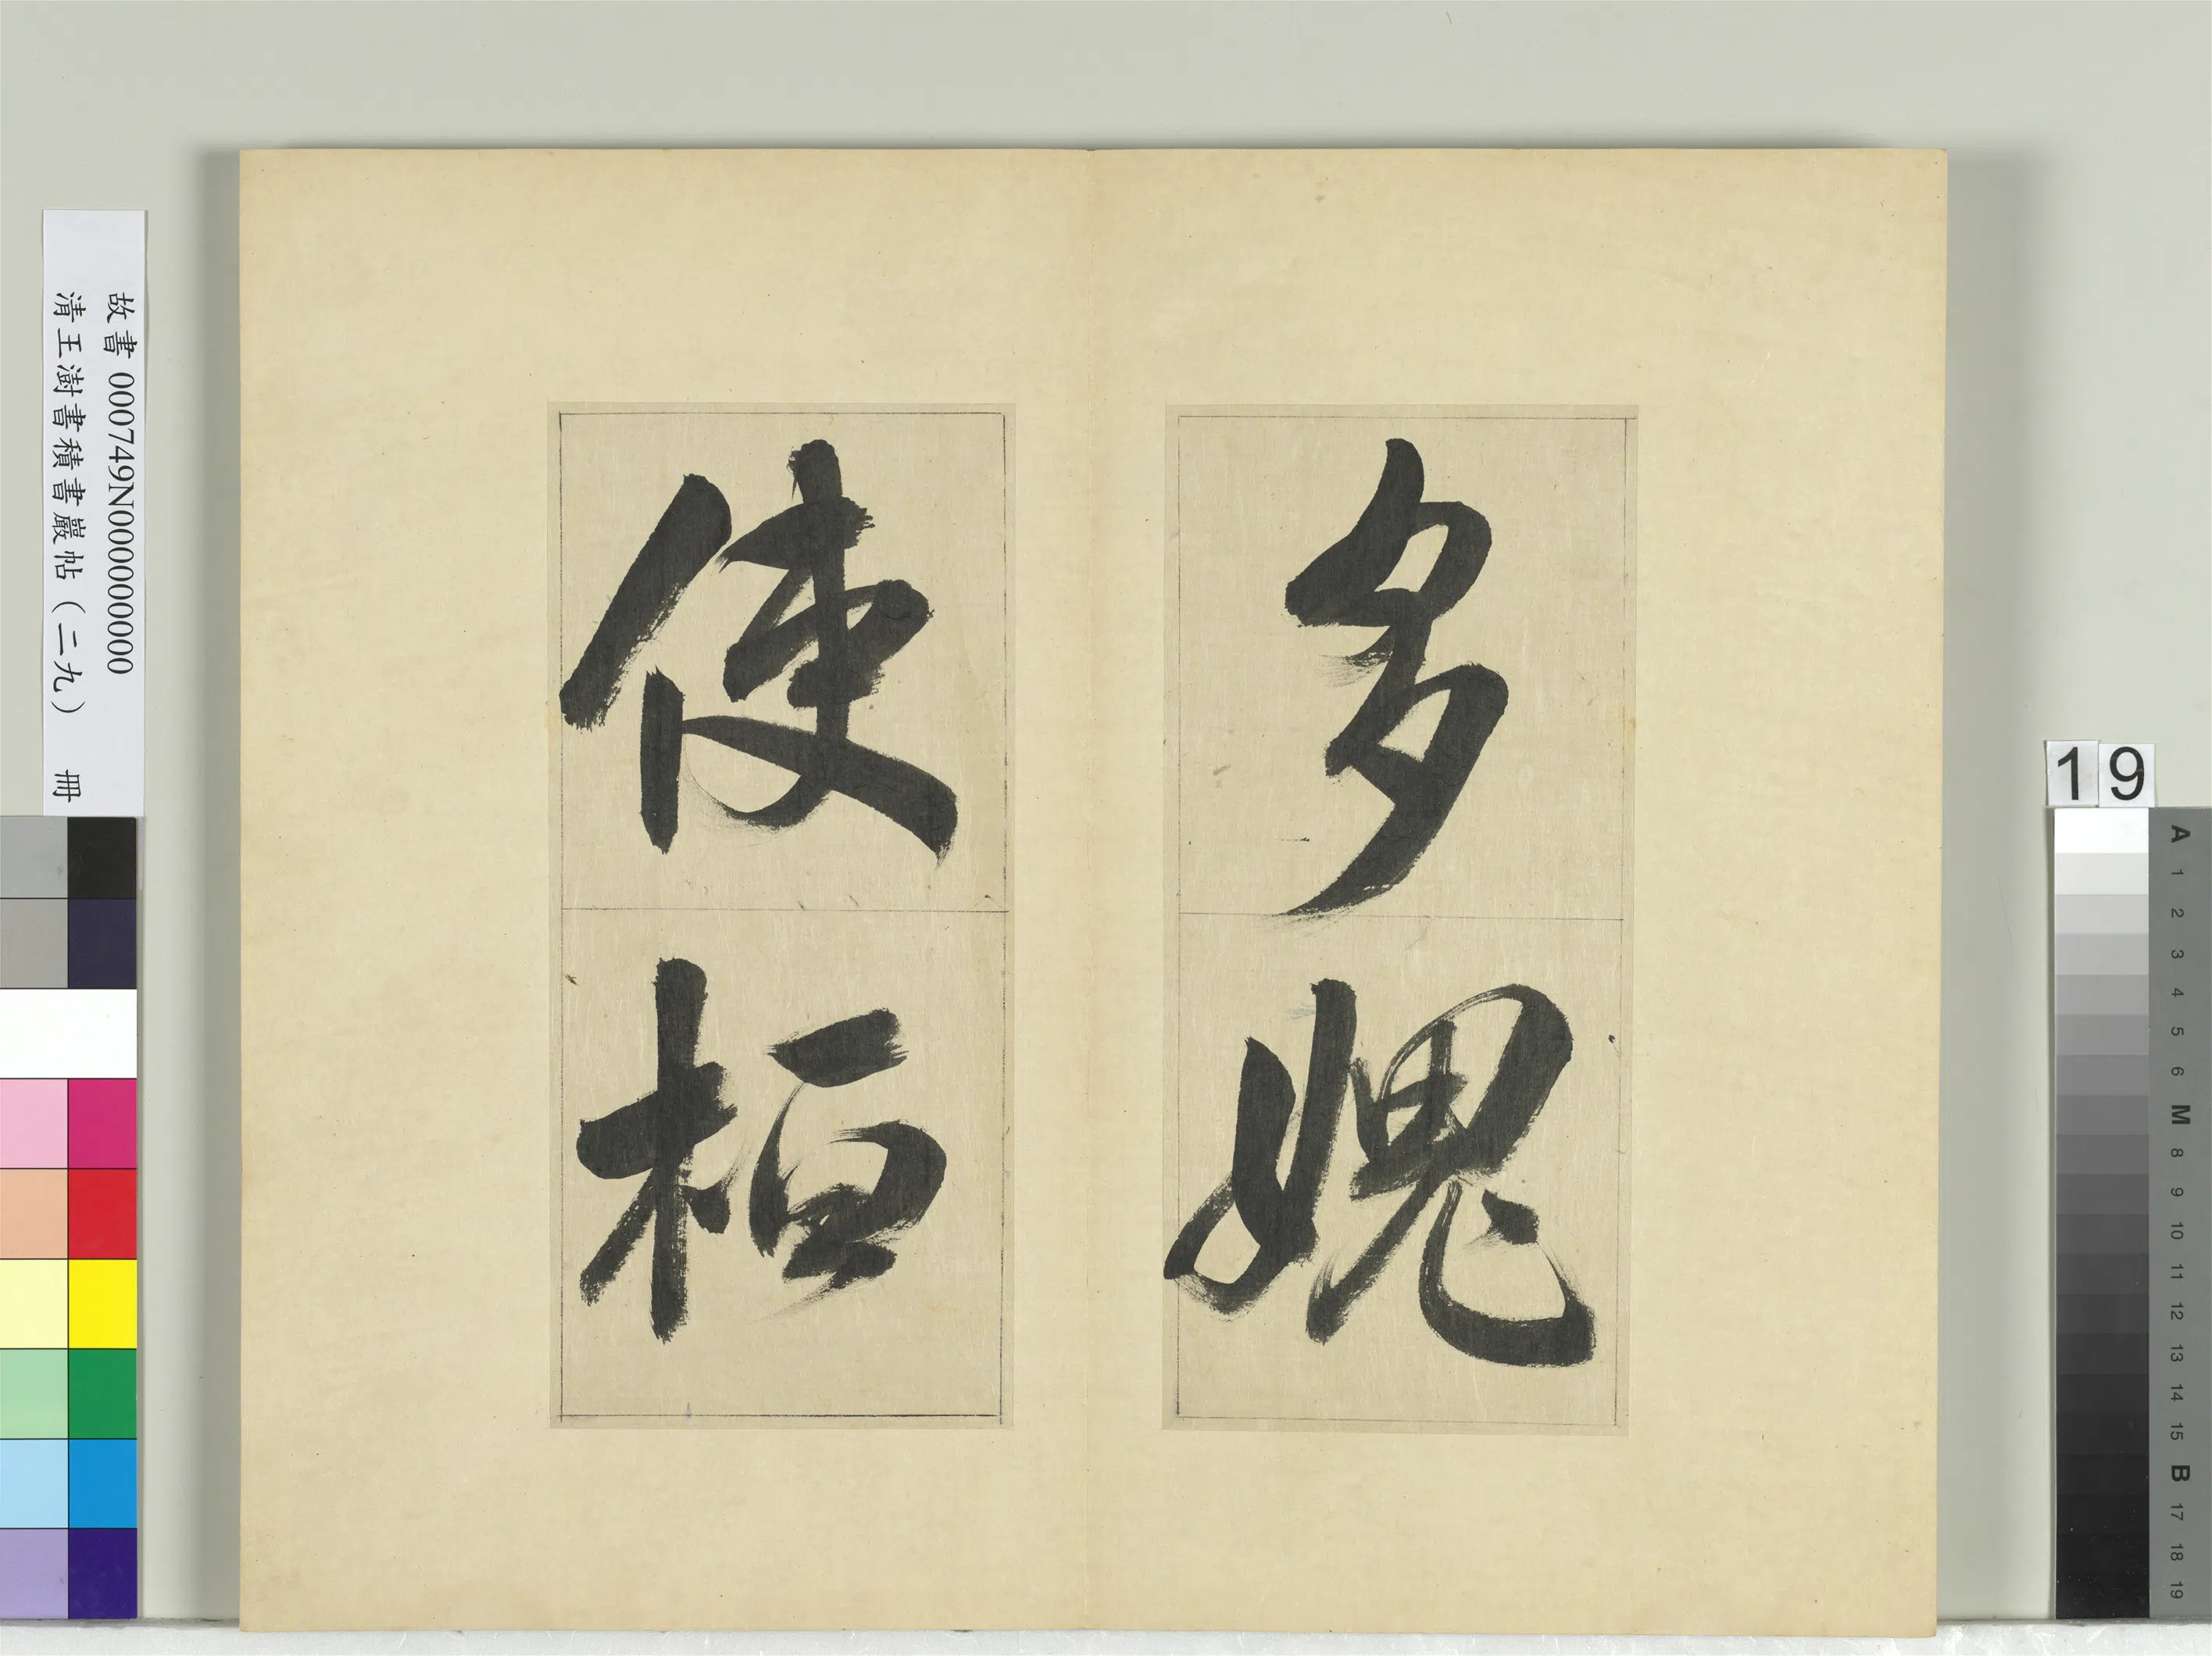 多媿
使桓
故書000749N000000000
清王澍書積書巖帖（二九） 冊
19
A
1
2
3
4
5
6
M
8
9
10
11
12
13
14
15
B
17
18
19